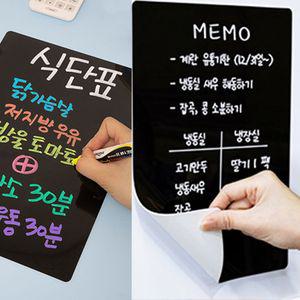 식단표
닭가슴날
저지방우유
방울토마토
+
각도 30분
운동 30분
MEMO
- 계란 유통기한 (12/25일~)
- 냉동실 새우 해동하기
- 잡곡, 콩 소분하기
냉동실 냉장실
고기만두 딸기 1팩
냉동새우
잡곡